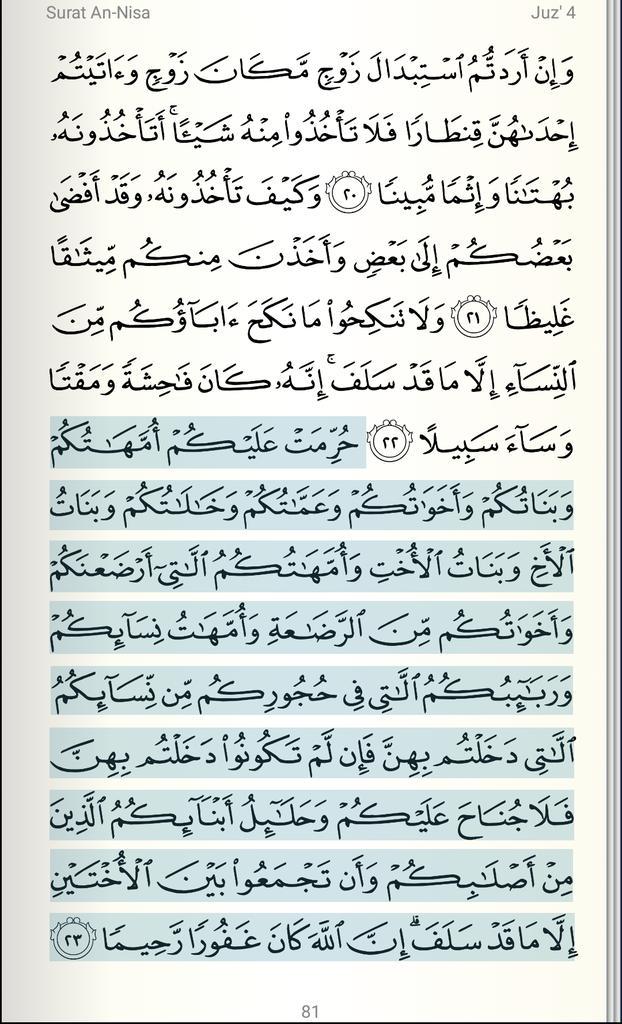 Surat An-Nisa
Juz' 4
وَإِنْ أَرَدتُّمُ ٱسْتِبْدَالَ زَوْجٍ مَّكَانَ زَوْجٍ وَءَاتَيْتُمْ
إِحْدَىٰهُنَّ قِنطَارًا فَلَا تَأْخُذُوا۟ مِنْهُ شَيْـًٔا ۚ أَتَأْخُذُونَهُۥ
بُهْتَـٰنًا وَإِثْمًا مُّبِينًا ٢٠ وَكَيْفَ تَأْخُذُونَهُۥ وَقَدْ أَفْضَىٰ
بَعْضُكُمْ إِلَىٰ بَعْضٍ وَأَخَذْنَ مِنكُم مِّيثَـٰقًا
غَلِيظًا ٢١ وَلَا تَنكِحُوا۟ مَا نَكَحَ ءَابَآؤُكُم مِّنَ
ٱلنِّسَآءِ إِلَّا مَا قَدْ سَلَفَ ۚ إِنَّهُۥ كَانَ فَـٰحِشَةً وَمَقْتًا
وَسَآءَ سَبِيلًا ٢٢ حُرِّمَتْ عَلَيْكُمْ أُمَّهَـٰتُكُمْ
وَبَنَاتُكُمْ وَأَخَوَٰتُكُمْ وَعَمَّـٰتُكُمْ وَخَـٰلَـٰتُكُمْ وَبَنَاتُ
ٱلْأَخِ وَبَنَاتُ ٱلْأُخْتِ وَأُمَّهَـٰتُكُمُ ٱلَّـٰتِىٓ أَرْضَعْنَكُمْ
وَأَخَوَٰتُكُم مِّنَ ٱلرَّضَـٰعَةِ وَأُمَّهَـٰتُ نِسَآئِكُمْ
وَرَبَـٰٓئِبُكُمُ ٱلَّـٰتِى فِى حُجُورِكُم مِّن نِّسَآئِكُمُ
ٱلَّـٰتِى دَخَلْتُم بِهِنَّ فَإِن لَّمْ تَكُونُوا۟ دَخَلْتُم بِهِنَّ
فَلَا جُنَاحَ عَلَيْكُمْ وَحَلَـٰٓئِلُ أَبْنَآئِكُمُ ٱلَّذِينَ
مِنْ أَصْلَـٰبِكُمْ وَأَن تَجْمَعُوا۟ بَيْنَ ٱلْأُخْتَيْنِ
إِلَّا مَا قَدْ سَلَفَ ۗ إِنَّ ٱللَّهَ كَانَ غَفُورًا رَّحِيمًا ٢٣
81